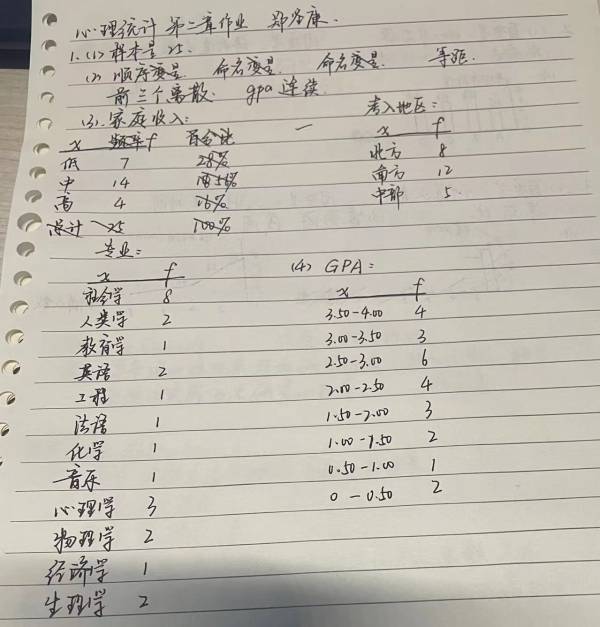 心理统计 第二章作业 郑裕康.
1. (1) 样本量 25.
(2) 顺序变量 命名变量 命名变量 等距.
前三个离散. gpa 连续
(3). 家庭收入:
x 频率f 百分比
低 7 28%
中 14 56%
高 4 16%
总计 25 100%
考入地区:
x f
北方 8
南方 12
中部 5
专业:
x f
社会学 8
人类学 2
教育学 1
英语 2
工程 1
法语 1
化学 1
音乐 1
心理学 3
物理学 2
经济学 1
生理学 2
(4) GPA:
x f
3.50-4.00 4
3.00-3.50 3
2.50-3.00 6
2.00-2.50 4
1.50-2.00 3
1.00-1.50 2
0.50-1.00 1
0-0.50 2